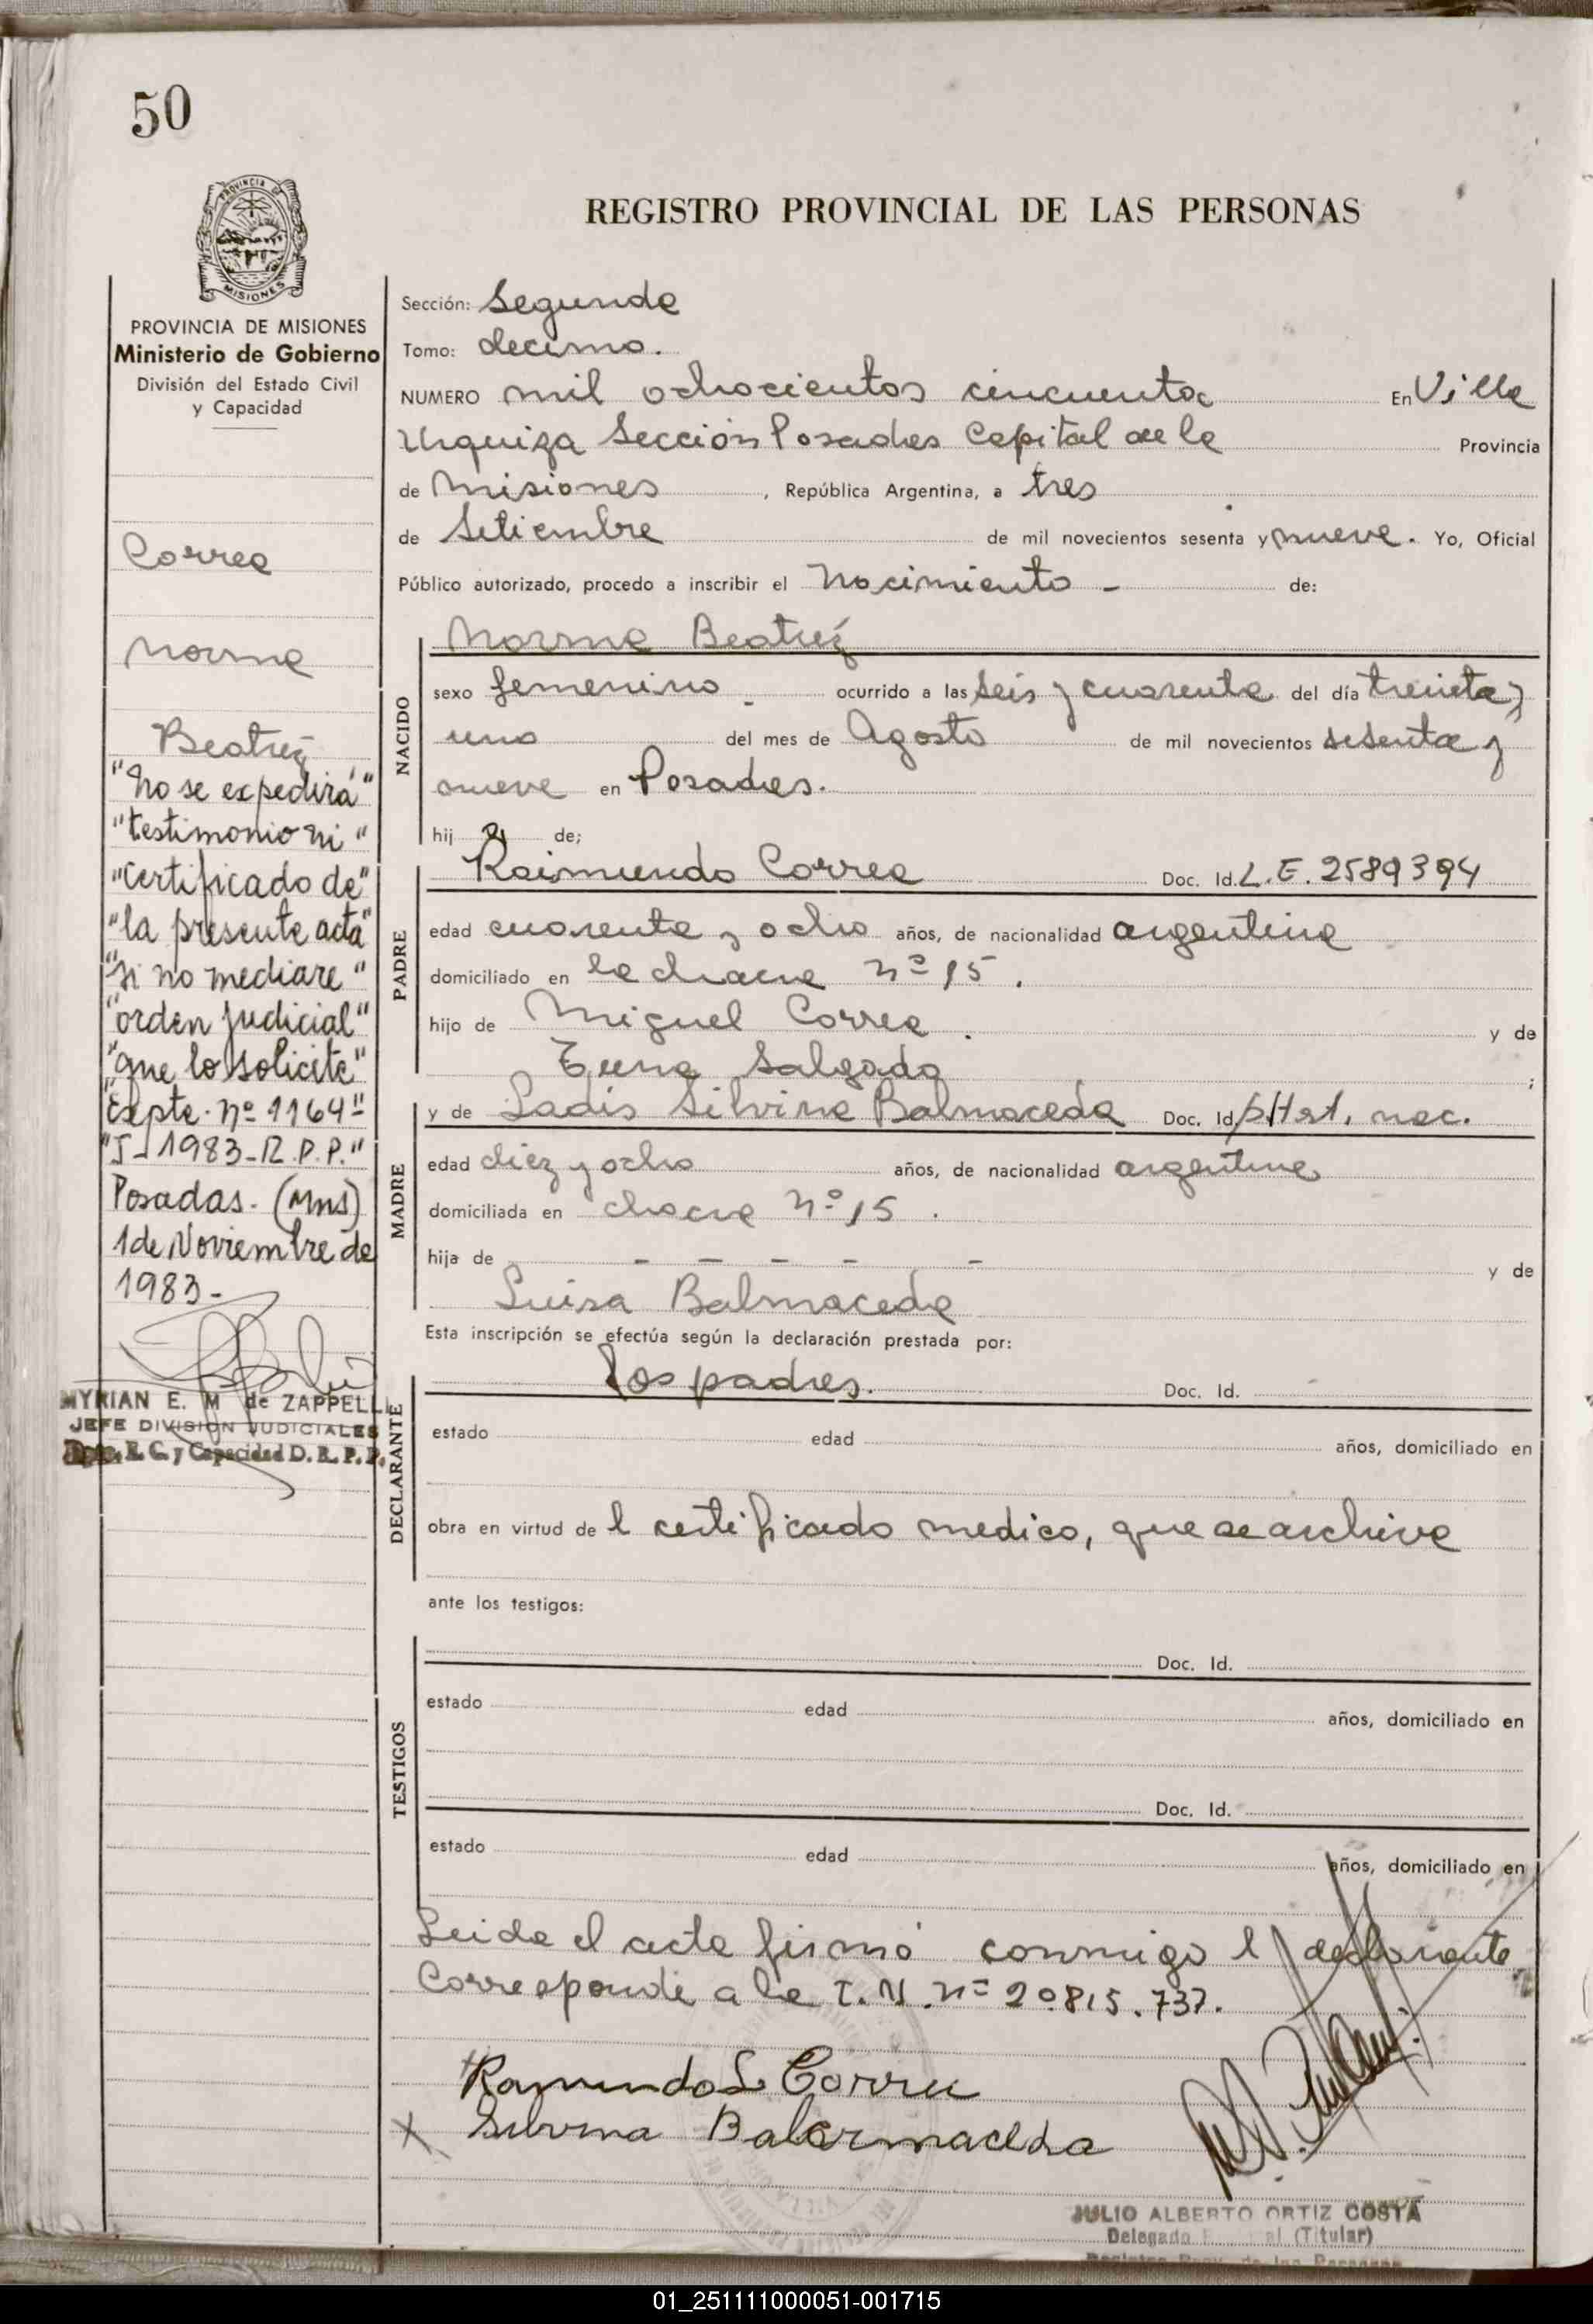 50
PROVINCIA DE
MISIONES
REGISTRO PROVINCIAL DE LAS PERSONAS
PROVINCIA DE MISIONES
Ministerio de Gobierno
División del Estado Civil
y Capacidad
Correa
Norma
Beatriz
"No se expedirá"
"testimonio ni"
"Certificado de"
"la presente acta"
"si no mediare"
"orden judicial"
"que lo solicite"
"Expte. nº 1164"
"J-1983-R.P.P."
Posadas. (Mns)
1 de Noviembre de
1983-
MYRIAN E. M de ZAPPELLI
JEFE DIVISION JUDICIALES
Dpto. E. C. y Capacidad D. R. P. P.
Sección: Segunda
Tomo: decimo.
NUMERO mil ochocientos cincuenta En Villa
Urquiza Sección Posadas Capital de la Provincia
de Misiones, República Argentina, a tres
de Setiembre de mil novecientos sesenta y nueve. Yo, Oficial
Público autorizado, procedo a inscribir el Nacimiento - de:
NACIDO
Norma Beatriz
sexo femenino ocurrido a las seis y cuarenta del día treinta y
uno del mes de Agosto de mil novecientos sesenta y
nueve en Posadas.
hij a de;
PADRE
Raimundo Correa Doc. Id. L.E. 2589394
edad cuarenta y ocho años, de nacionalidad argentina
domiciliado en la chacra nº 15.
hijo de Miguel Correa. y de
Salgado;
MADRE
y de Ladis Silvina Balmaceda Doc. Id. nac.
edad diez y ocho años, de nacionalidad argentina
domiciliada en chacra nº 15.
hija de - - - - - y de
Luisa Balmaceda
Esta inscripción se efectúa según la declaración prestada por:
DECLARANTE
los padres. Doc. Id.
estado edad años, domiciliado en
obra en virtud de l certificado medico, que se archiva
ante los testigos:
TESTIGOS
Doc. Id.
estado edad años, domiciliado en
Doc. Id.
estado edad años, domiciliado en
Leida el acta firmó conmigo l declarante
Corresponde a la T.N. nº 20815.737.
Ramundo S Correa
x Silvina Balarmaceda
JULIO ALBERTO ORTIZ COSTA
Delegado (Titular)
01_251111000051-001715